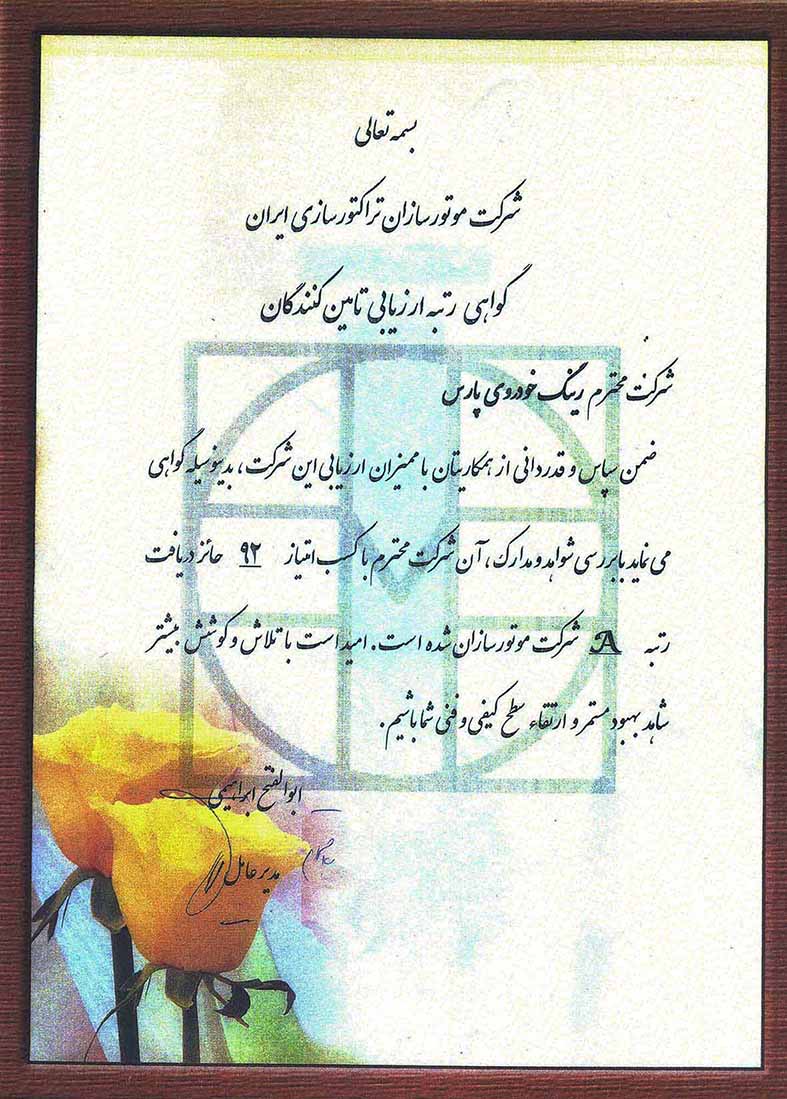 بسمه تعالی
شرکت موتورسازان تراکتورسازی ایران
گواهی رتبه ارزیابی تامین کنندگان
شرکت محترم رینگ خودروی پارس
ضمن سپاس و قدردانی از همکاریتان با ممیزان ارزیابی این شرکت، بدینوسیله گواهی
می نماید با بررسی شواهد و مدارک، آن شرکت محترم با کسب امتیاز ۹۲ حائز دریافت
رتبه A شرکت موتورسازان شده است. امید است با تلاش و کوشش بیشتر
شاهد بهبود مستمر و ارتقاء سطح کیفی و فنی شما باشیم.
ابوالفتح ابراهیمی
مدیر عامل